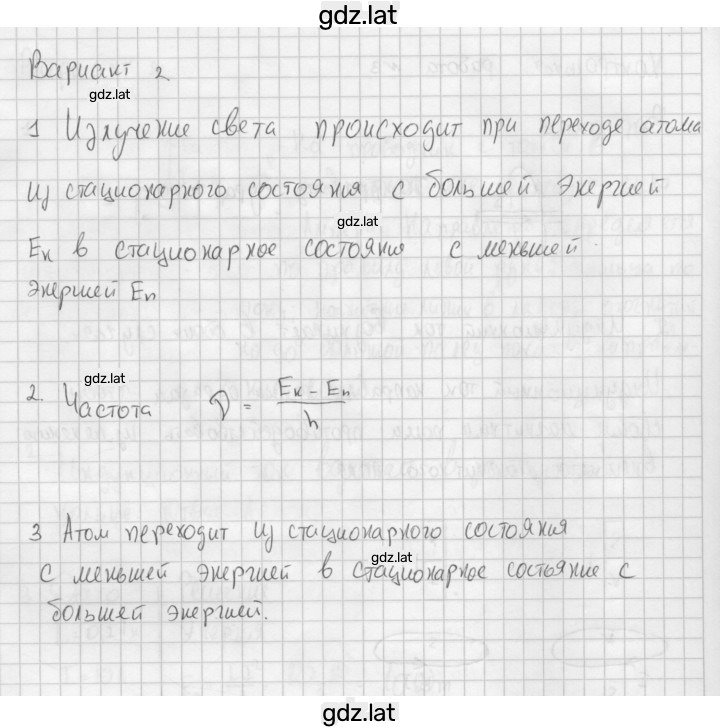 gdz.lat
Вариант 2
gdz.lat
1 Излучение света происходит при переходе атома
из стационарного состояния с большей энергией
gdz.lat
Eк в стационарное состояния с меньшей
энергией En
gdz.lat
2. Частота ν = (Eк - En) / h
3 Атом переходит из стационарного состояния
gdz.lat
с меньшей энергией в стационарное состояние с
большей энергией.
gdz.lat